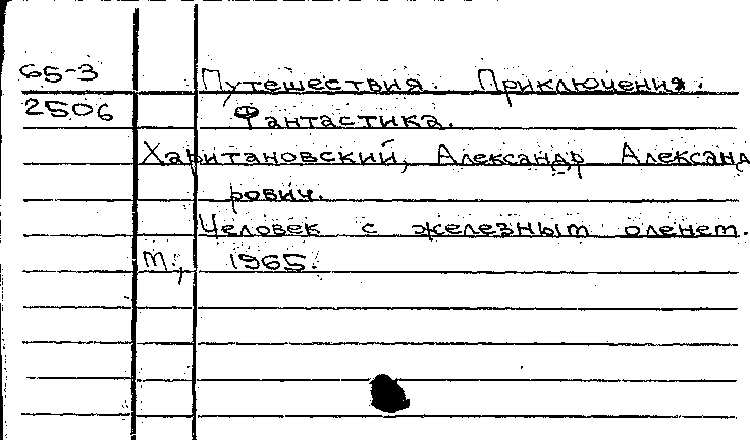 65-3 Путешествия. Приключения.
2506 Фантастика.
Харитановский, Александр Александ
рович.
Человек с железным оленем.
М., 1965.